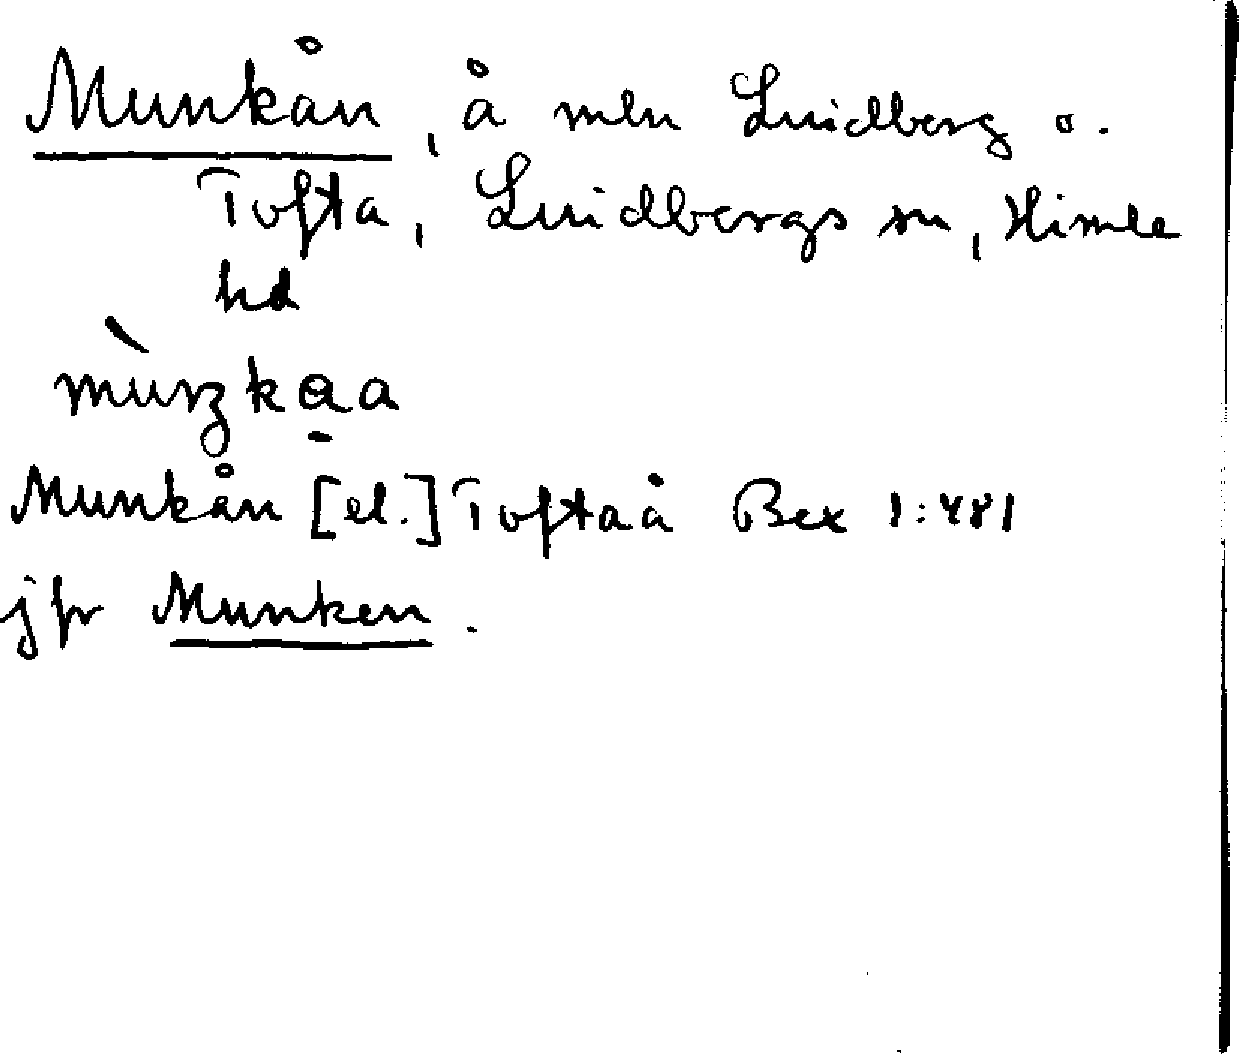 Munkån, å mln Lindberg o.
Tofta, Lindbergs sn, Himle
hd
Munkån [el.] Toftaå Bex 1:481
jfr Munken.